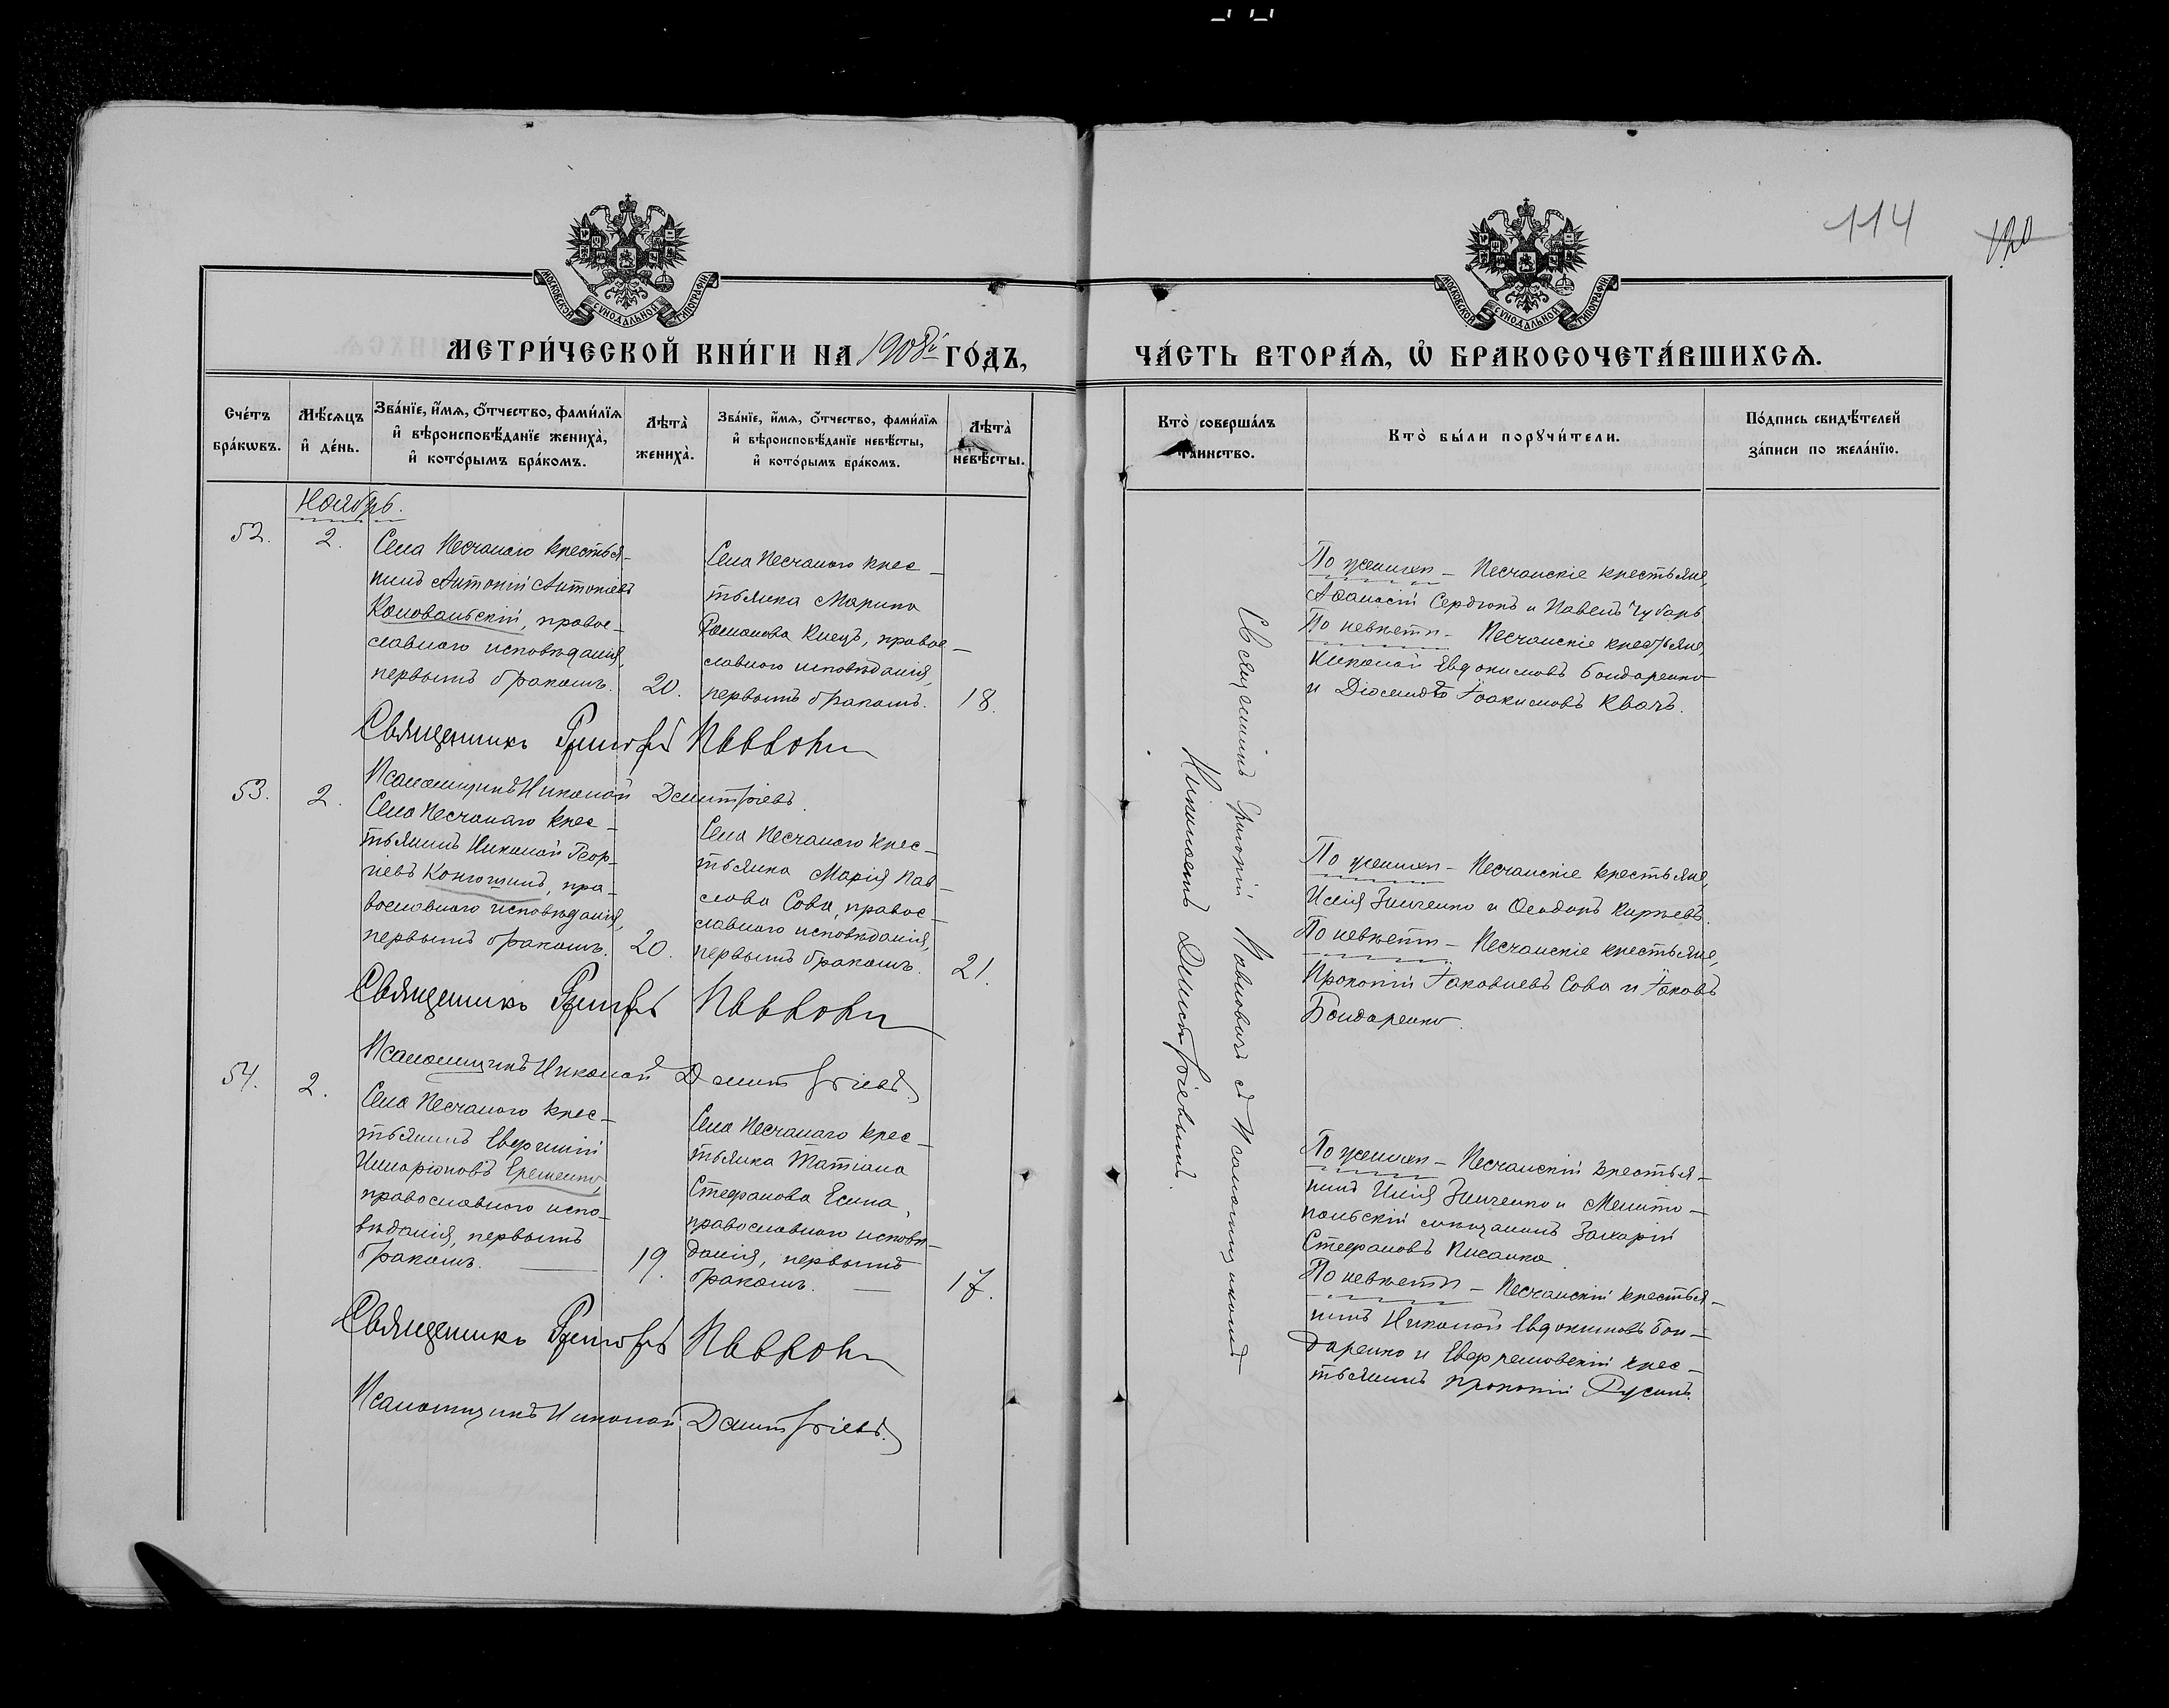 114
120
МОСКОВСКОЙ СѴНОДАЛЬНОЙ ТИПОГРАФІИ
МОСКОВСКОЙ СѴНОДАЛЬНОЙ ТИПОГРАФІИ
МЕТРИ́ЧЕСКОЙ КНИ́ГИ НА 1908й ГО́ДЪ,
ЧА́СТЬ ВТОРА́Ѧ, Ѽ БРАКОСОЧЕТА́ВШИХСѦ.
Сче́тъ бра́кωвъ.
Мѣ́сѧцъ и҆ де́нь.
Зва́нїе, и҆́мѧ, ѻ҆́тчество, фами́лїѧ и҆ вѣроисповѣ́данїе жениха̀, и҆ кото́рымъ бра́комъ.
Лѣта̀ жениха̀.
Зва́нїе, и҆́мѧ, ѻ҆́тчество, фами́лїѧ и҆ вѣроисповѣ́данїе невѣ́сты, и҆ кото́рымъ бра́комъ.
Лѣта̀ невѣ́сты.
Кто̀ соверша́лъ та́инство.
Кто̀ бы́ли порꙋчи́тели.
По́дпись свидѣ́телей за́писи по жела́нїю.
Ноябрь.
52.
2.
Села Песчанаго крестья-
нинъ Антоній Антоніевъ
Коновальскій, право-
славнаго исповѣданія,
первымъ бракомъ.
20.
Села Песчанаго крес-
тьянка Марина
Романова Киецъ, право-
славнаго исповѣданія,
первымъ бракомъ.
18.
По женихѣ - Песчанскіе крестьяне,
Аѳанасій Сердюкъ и Павелъ Чубарь
По невѣстѣ - Песчанскіе крестьяне,
Николай Евдокимовъ Бондаренко
и Діомидъ Іоакимовъ Квачъ.
Священникъ Григорій Павловичъ
Псаломщикъ Николай Дмитріевъ.
53.
2.
Села Песчанаго крес-
тьянинъ Николай Геор-
гіевъ Конюшинъ, пра-
вославнаго исповѣданія,
первымъ бракомъ.
20.
Села Песчанаго крес-
тьянка Марія Пав-
лова Сова, правос-
лавнаго исповѣданія,
первымъ бракомъ.
21.
По женихѣ - Песчанскіе крестьяне,
Илія Зинченко и Ѳеодоръ Киреевъ.
По невѣстѣ - Песчанскіе крестьяне,
Прокопій Іаковлевъ Сова и Іаковъ
Бондаренко.
Священникъ Григорій Павловичъ
Псаломщикъ Николай Дмитріевъ
54.
2.
Села Песчанаго крес-
тьянинъ Евфимій
Иларіоновъ Еременко,
православнаго испо-
вѣданія, первымъ
бракомъ.
19.
Села Песчанаго крес-
тьянка Татіана
Стефанова Есипа,
православнаго исповѣ-
данія, первымъ
бракомъ.
17.
По женихѣ - Песчанскій крестья-
нинъ Илія Зинченко и Мелито-
польскій мѣщанинъ Захарій
Стефановъ Писанка.
По невѣстѣ - Песчанскій крестья-
нинъ Николай Евдокимовъ Бон-
даренко и крес-
тьянинъ Прокопій Русинъ.
Священникъ Григорій Павловичъ
Псаломщикъ Николай Дмитріевъ.
Священникъ Григорій Павловичъ съ Псаломщикомъ
Николаемъ Дмитріевымъ.